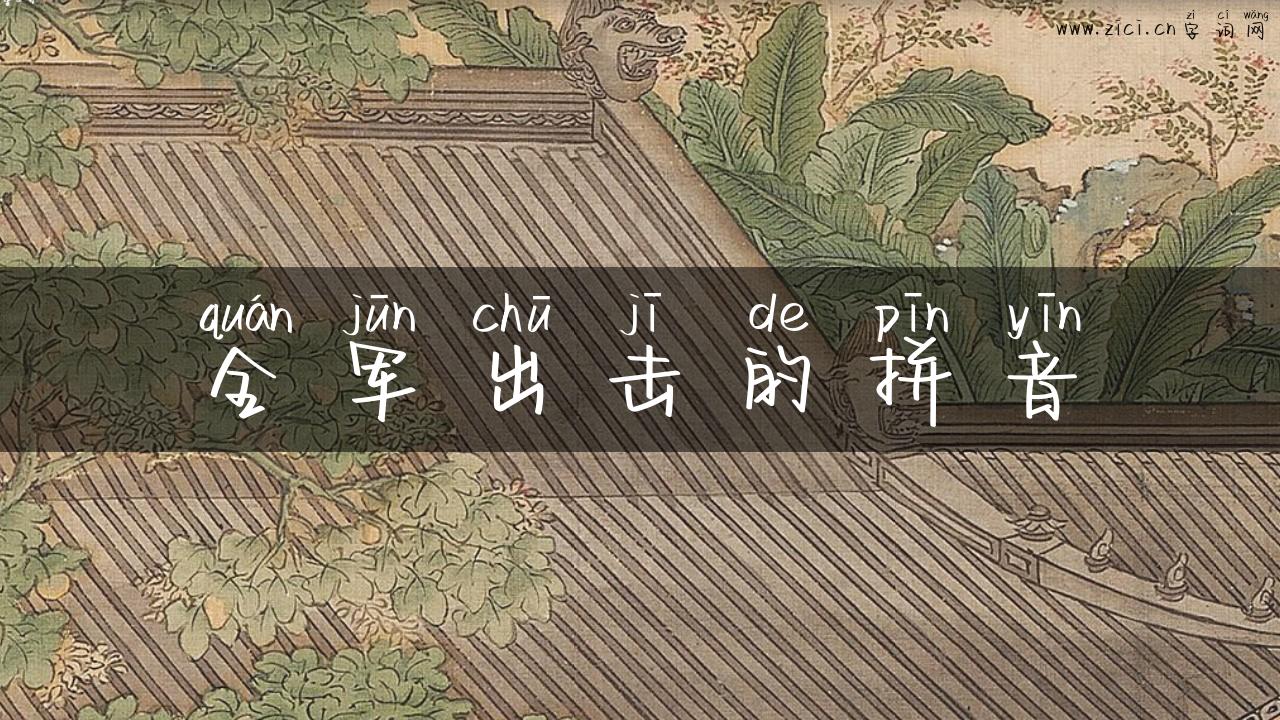 zì cí wǎng
www.zici.cn 字词网
quán jūn chū jī de pīn yīn
全军出击的拼音